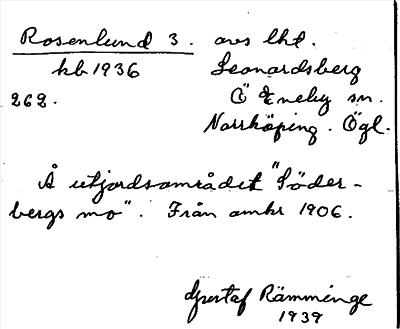 Rosenlund 3. avs lht.
kb 1936 Leonardsberg
262. Ö Eneby sn.
Norrköping. Ögl.
Å utjordsområdet "Söder-
bergs mo". Från omkr 1906.
Gustaf Rämminge
1939